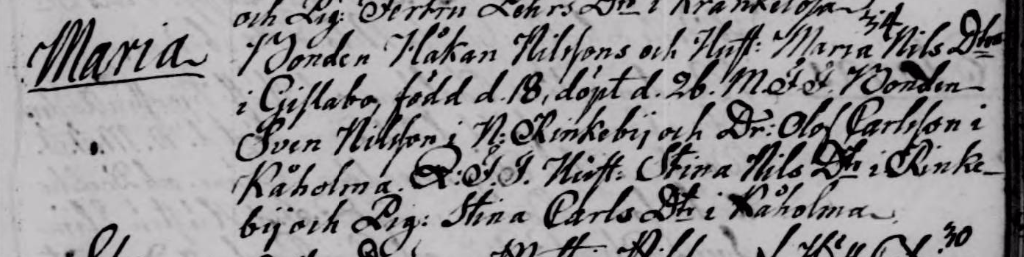 och Pig: Kerstin Lehrs Dtr i Krankelösa
Maria
34
Bonden Håkan Nilssons och Hust: Maria Nils Dtrs
i Gislabo, född d. 18, döpt d. 26. M.F.F. Bonden
Sven Nilsson i N: Rinkebÿ och Dr: Olof Carlsson i
Kåholma. Q: F. F. Hust: Stina Nils Dtr i Rinke-
bÿ och Pig: Stina Carls Dtr i Kåholma
30